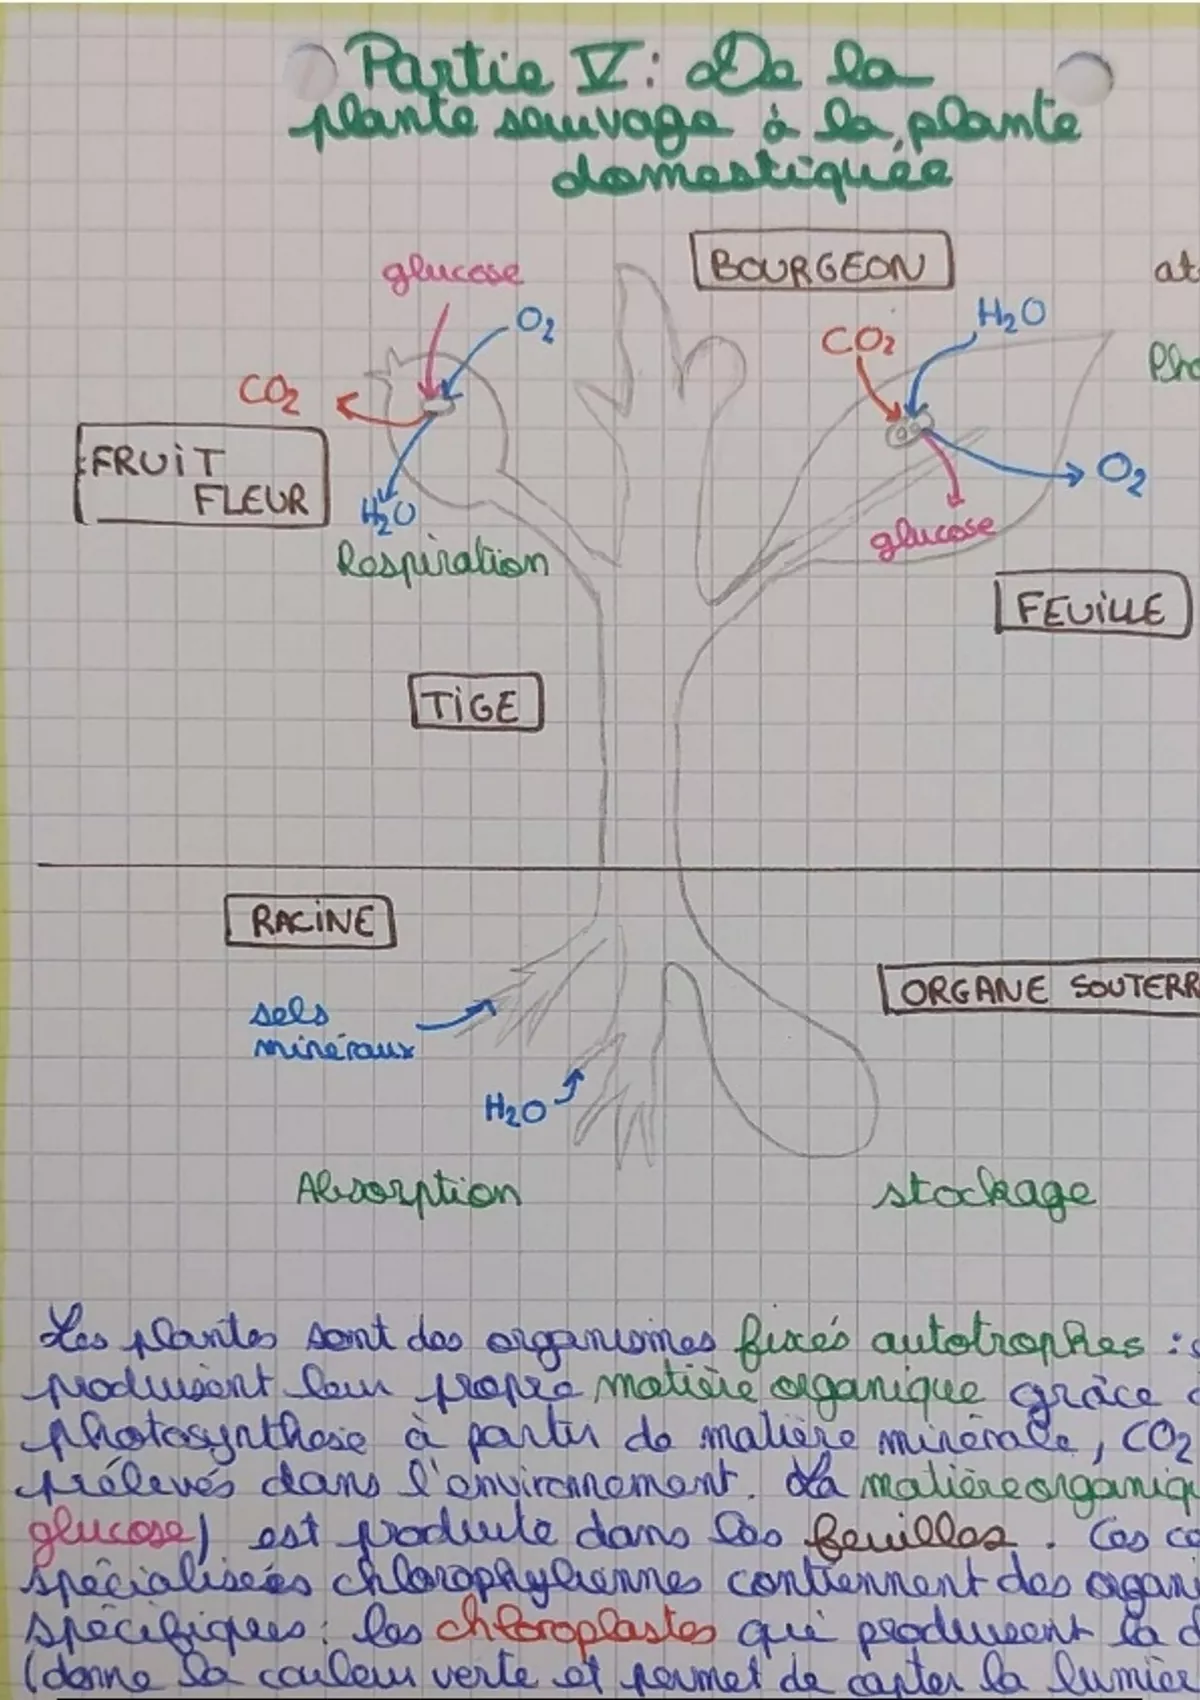 Partie V : De la
plante sauvage à la plante
domestiquée
BOURGEON
glucose
O2
H2O
CO2
CO2
FRUIT
FLEUR
O2
H2O
glucose
Respiration
FEUILLE
TIGE
RACINE
ORGANE SOUTERR
sels
minéraux
H2O
Absorption
stockage
Les plantes sont des organismes fixés autotrophes :
produisent leur propre matière organique grâce
photosynthèse à partir de matière minérale, CO2
prélevés dans l'environnement. La matière organiqu
glucose) est produite dans les feuilles. Ces ce
spécialisées chlorophyliennes contiennent des organi
spécifiques : les chloroplastes qui produisent la
(donne la couleur verte et permet de capter la lumièr